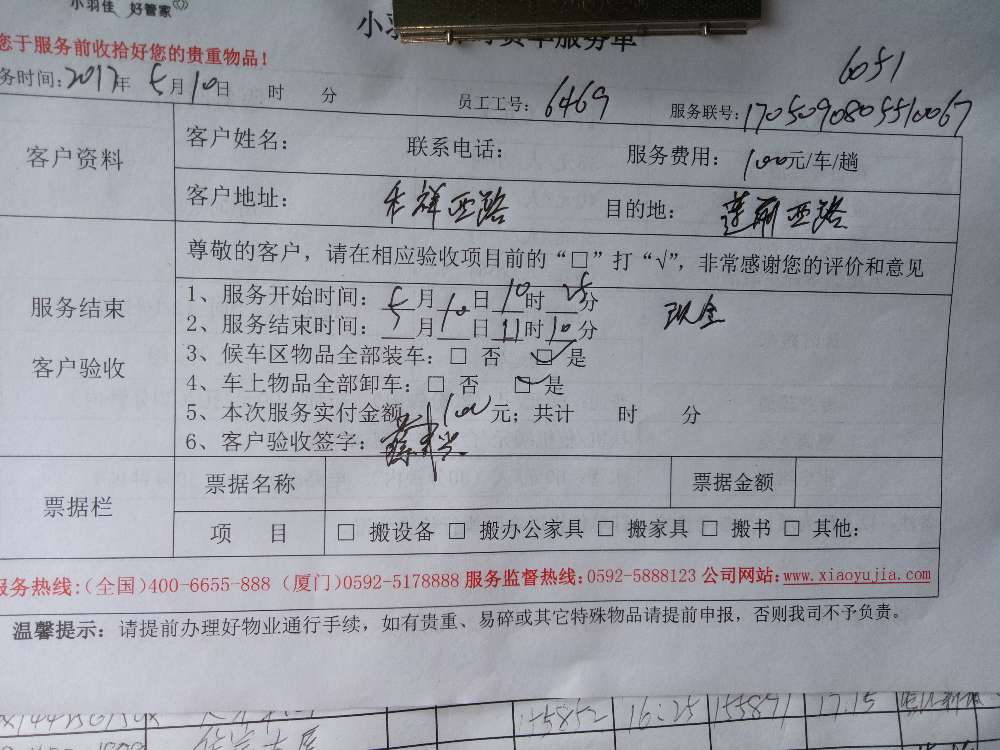 小羽佳 好管家
您于服务前收拾好您的贵重物品！
务时间：2017年 5月10日 时 分 员工工号：6469 服务联号：1705090805510067
6051
客户资料
客户姓名： 联系电话： 服务费用：100元/车/趟
客户地址： 禾祥西路 目的地： 莲前西路
服务结束
客户验收
尊敬的客户，请在相应验收项目前的“□”打“√”，非常感谢您的评价和意见
1、服务开始时间：5月10日10时25分 现金
2、服务结束时间：5月10日11时10分
3、候车区物品全部装车：□ 否 ☑ 是
4、车上物品全部卸车：□ 否 ☑ 是
5、本次服务实付金额 100元；共计 时 分
6、客户验收签字：
票据栏
票据名称 票据金额
项 目 □ 搬设备 □ 搬办公家具 □ 搬家具 □ 搬书 □ 其他：
服务热线：（全国）400-6655-888（厦门）0592-5178888 服务监督热线：0592-5888123 公司网站：www.xiaoyujia.com
温馨提示：请提前办理好物业通行手续，如有贵重、易碎或其它特殊物品请提前申报，否则我司不予负责。
155852 16:25 155871 17.15